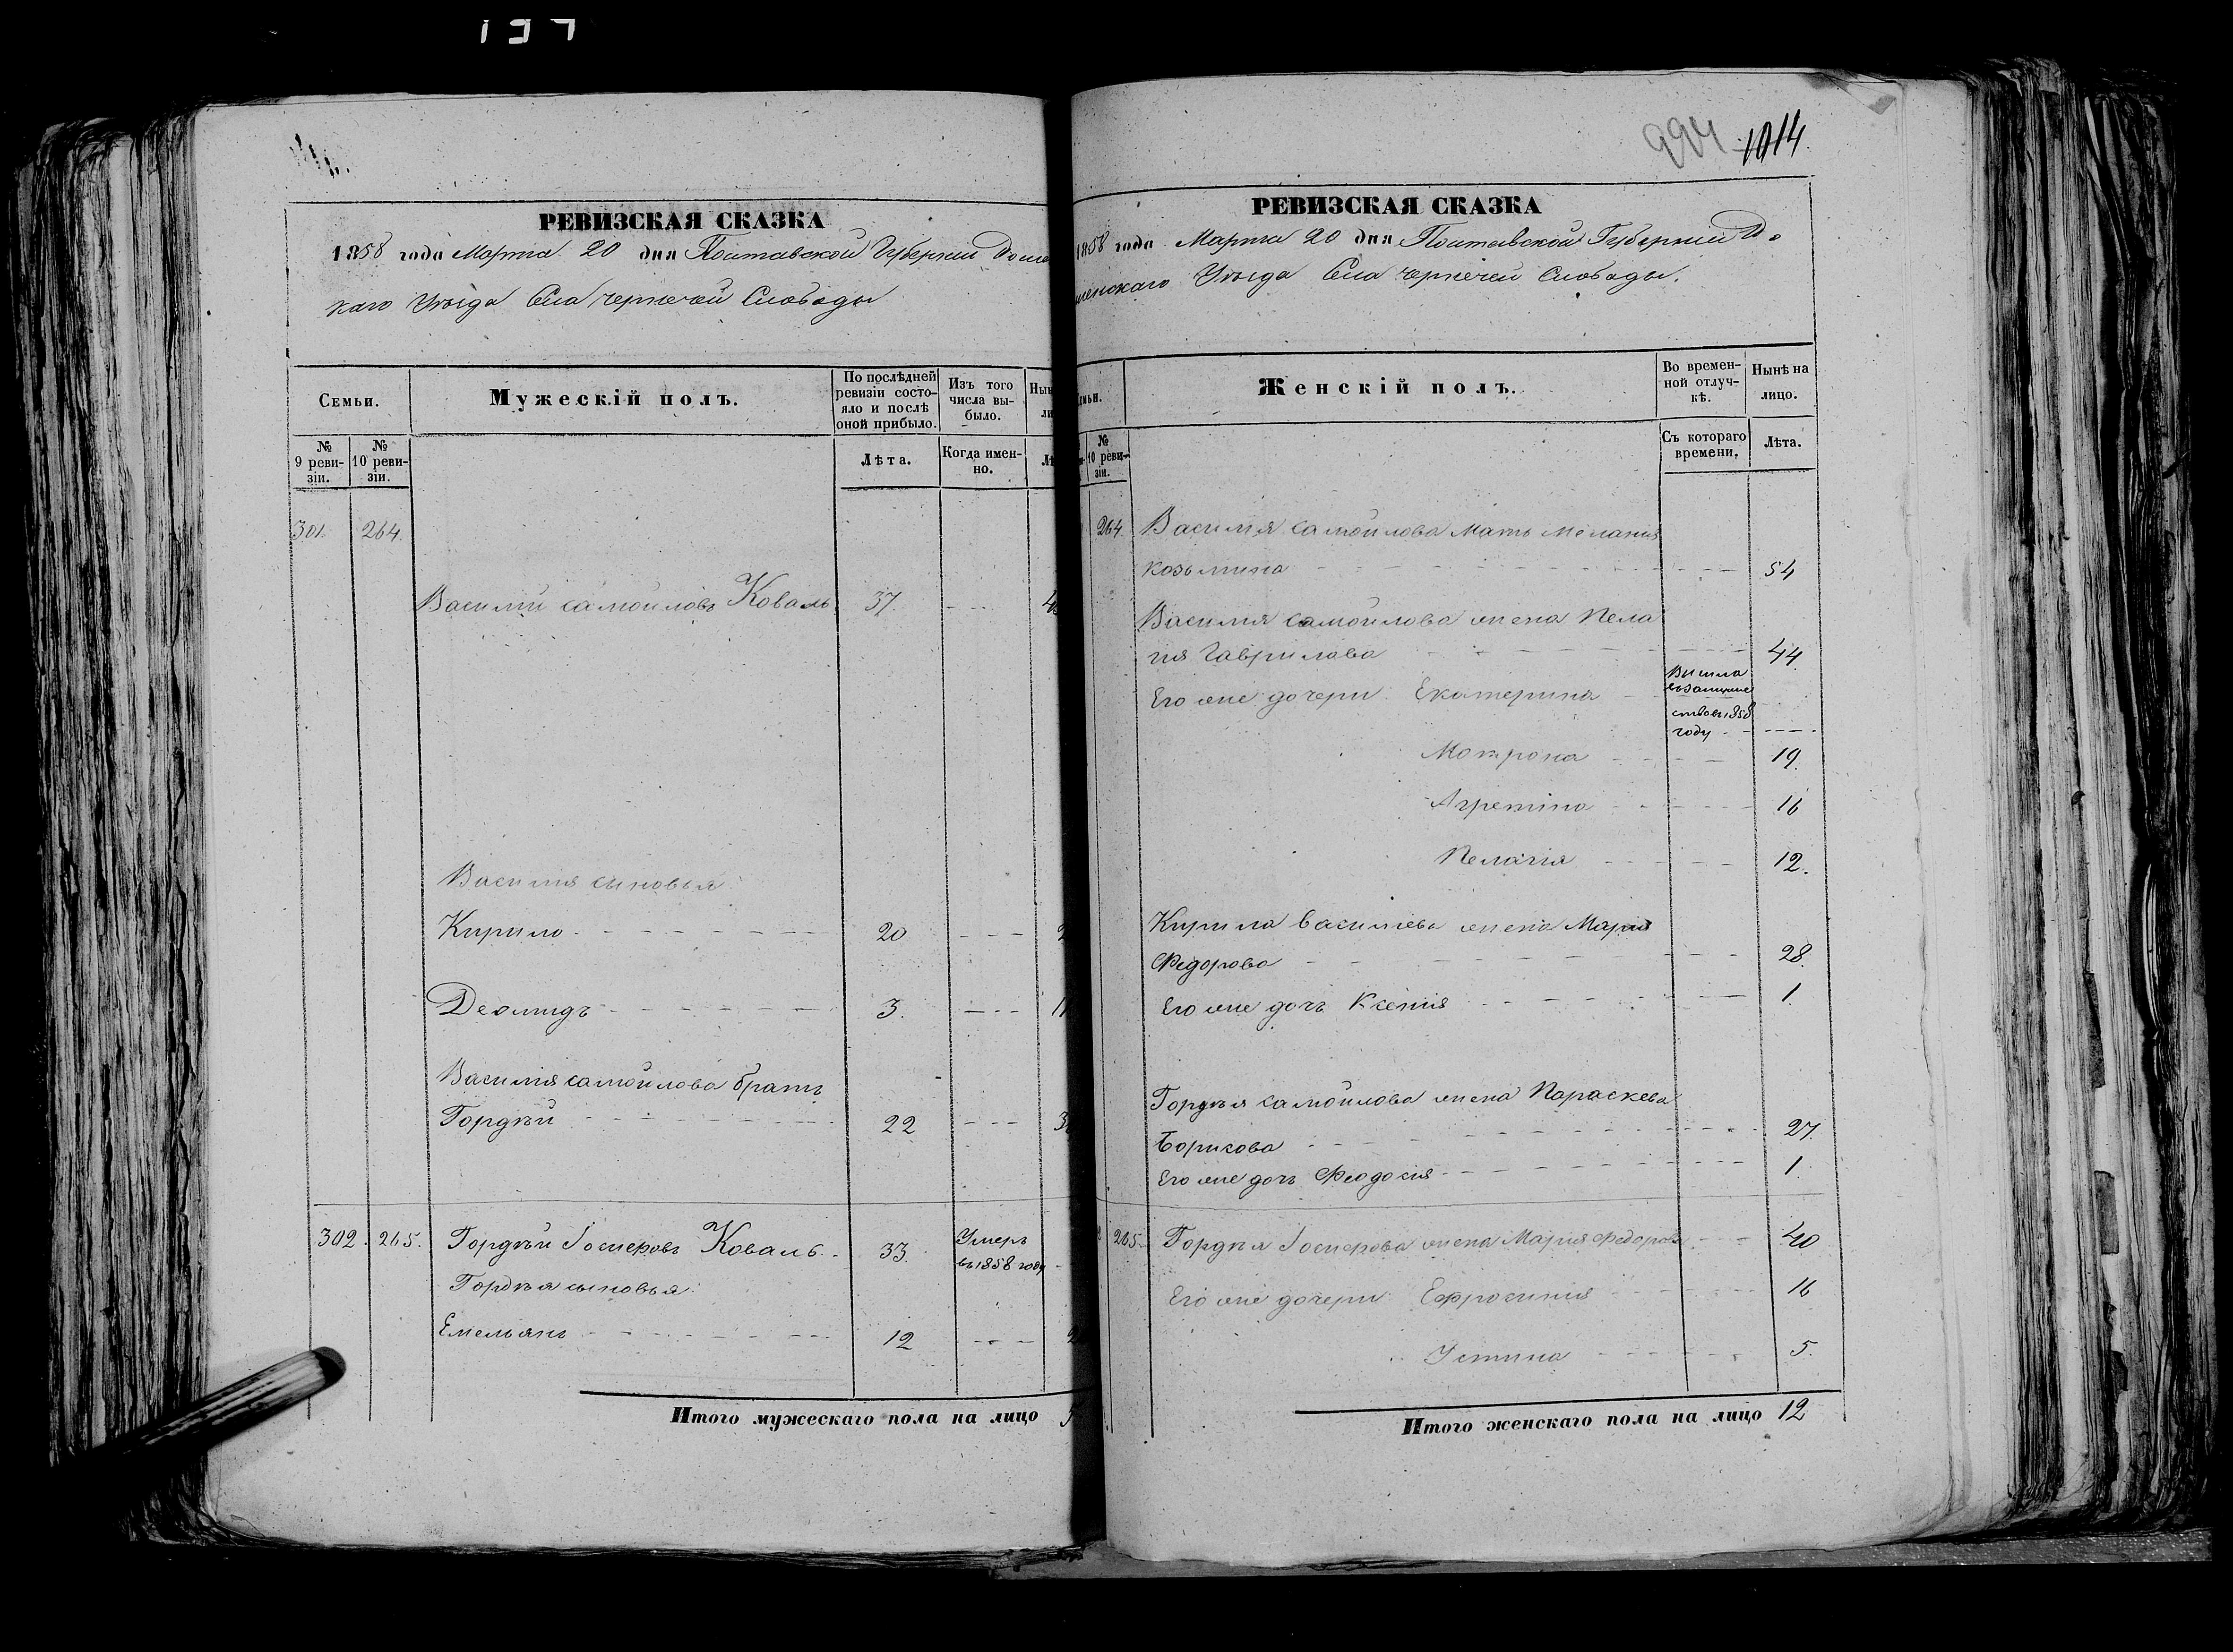 РЕВИЗСКАЯ СКАЗКА
1858 года Марта 20 дня Полтавской Губернии
каго Уѣзда Села чернечей Слободы
Семьи.
Мужескій полъ.
По послѣдней ревизіи состояло и послѣ оной прибыло.
Изъ того числа выбыло.
№ 9 ревизіи.
№ 10 ревизіи.
Лѣта.
Когда именно.
301. 264.
Василій самойловъ Коваль 37.
Василія сыновья
Кирило 20
Деомидъ 3.
Василія самойлова братъ
Гордѣй 22
302. 265. Гордѣй Іосиповъ Коваль 33. Умеръ
въ 1858 году
Гордѣя сыновья
Емельянъ 12
Итого мужескаго пола на лицо
994 1014.
РЕВИЗСКАЯ СКАЗКА
1858 года Марта 20 дня Полтавской Губерніи Ро
менскаго Уѣзда Села чернечей Слободы.
Женскій полъ.
Во временной отлучкѣ.
Нынѣ на лицо.
№ 10 ревизіи.
Съ котораго времени.
Лѣта.
264. Василія самойлова мать Меланія
козьмина 54
Василія самойлова жена Пела
гія Гаврилова 44.
Его же дочери Екатерина
году
Мотрона 19.
16
Пелагія 12.
Кирила васильева жена Марія
Федорова 28.
Его же дочь Ксенія 1.
Гордѣя самойлова жена Параскева
Борисова 27.
Его же дочь Феодосія 1.
265. Гордѣя Іосипова жена Марія Федорова 40
Его же дочери Ефросинія 16
Устина 5.
Итого женскаго пола на лицо 12